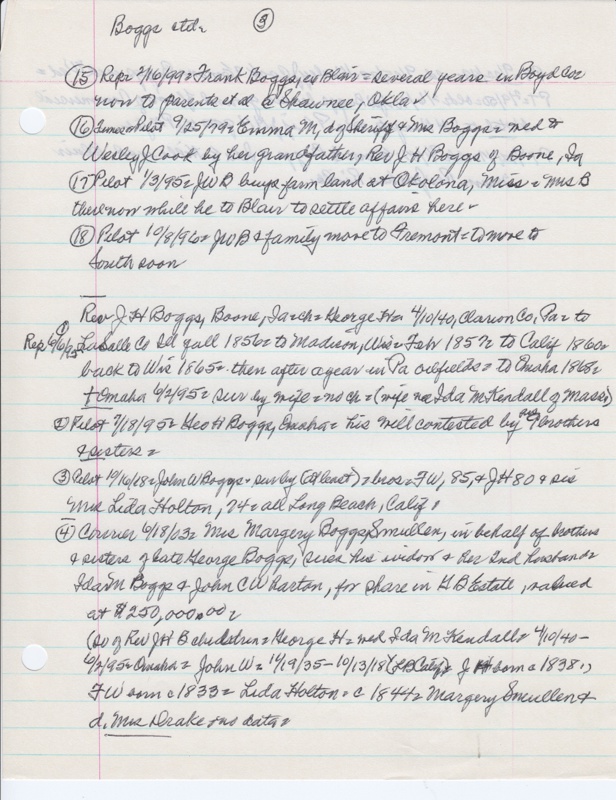 Boggs ctd= ③
⑮ Rep= 2/16/99= Frank Boggs, in Blair= several years in Boyd Co=
now to parents et al @ Shawnee, Okla
⑯ Pilot 9/25/79= Emma M, d of Sheriff & Mrs Boggs= wed to
Wesley J Cook by her grandfather, Rev J H Boggs of Boone, Ia
⑰ Pilot 1/3/95= JWB buys farm land at Okolona, Miss= Mrs B
there now while he to Blair to settle affairs here
⑱ Pilot 10/8/96= JWB & family move to Fremont= to move to
South soon
Rev J H Boggs, Boone, Ia=ch= George H= 4/10/40, Clarion Co, Pa= to
① Rep 6/6/95 LaSalle Co Ill fall 1856= to Madison, Wis= Febr 1857= to Calif 1860=
back to Wis 1865= then after a year in Pa oilfields= to Omaha 1868=
† Omaha 6/2/95= sur by wife= no ch= (wife nee Ida M Kendall of Mass)
② Pilot 7/18/95= Geo H Boggs, Omaha= his will contested by brothers
& sisters=
③ Pilot 10/16/18= John W Boggs= sur by (at least)= bros= FW, 85, & JH 80 & sis
Mrs Lida Holton, 74= all Long Beach, Calif
④ Courier 6/18/03= Mrs Margery Boggs Smullen, in behalf of brothers
& sisters of late George Boggs, sues his widow & her 2nd husband=
Ida M Boggs & John C Wharton, for share in G B Estate, valued
at $250,000.00=
(so of Rev JH B children= George H= wed Ida M Kendall= 4/10/40-
6/2/95= Omaha= John W= 10/19/35-10/13/18 (LB Calif)= J H born c 1838=,
F W born c 1833= Lida Holton= c 1844= Margery Smullen &
d, Mrs Drake= no data=